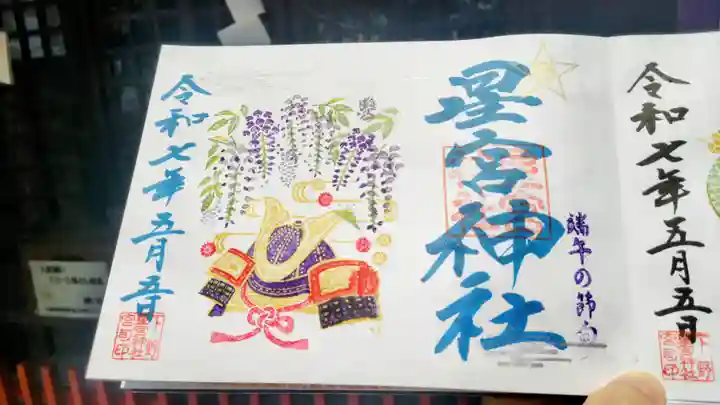 令和七年五月五日
星宮神社
端午の節句
令和七年五月五日